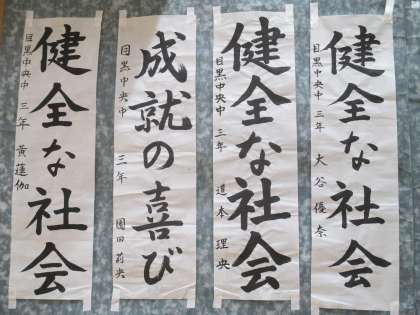 健全な社会
目黒中央中 三年 大谷優奈
健全な社会
目黒中央中 三年 道本理央
成就の喜び
目黒中央中 三年 園田莉央
健全な社会
目黒中央中 三年 黄蓮伽